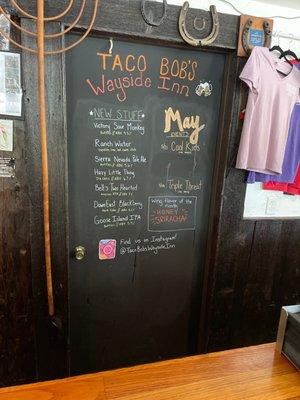 TACO BOB'S
Wayside Inn
NEW STUFF
Victory Sour Monkey
Ranch Water
Sierra Nevada Pale Ale
Hazy Little Thing
Bell's Two Hearted
DownEast Blackberry
Goose Island IPA
May
EVENTS
Cool Kids
Triple Threat
Wing Flavor of the
month
HONEY
SRIRACHA
Find us on Instagram!
@TacoBobsWaysideInn